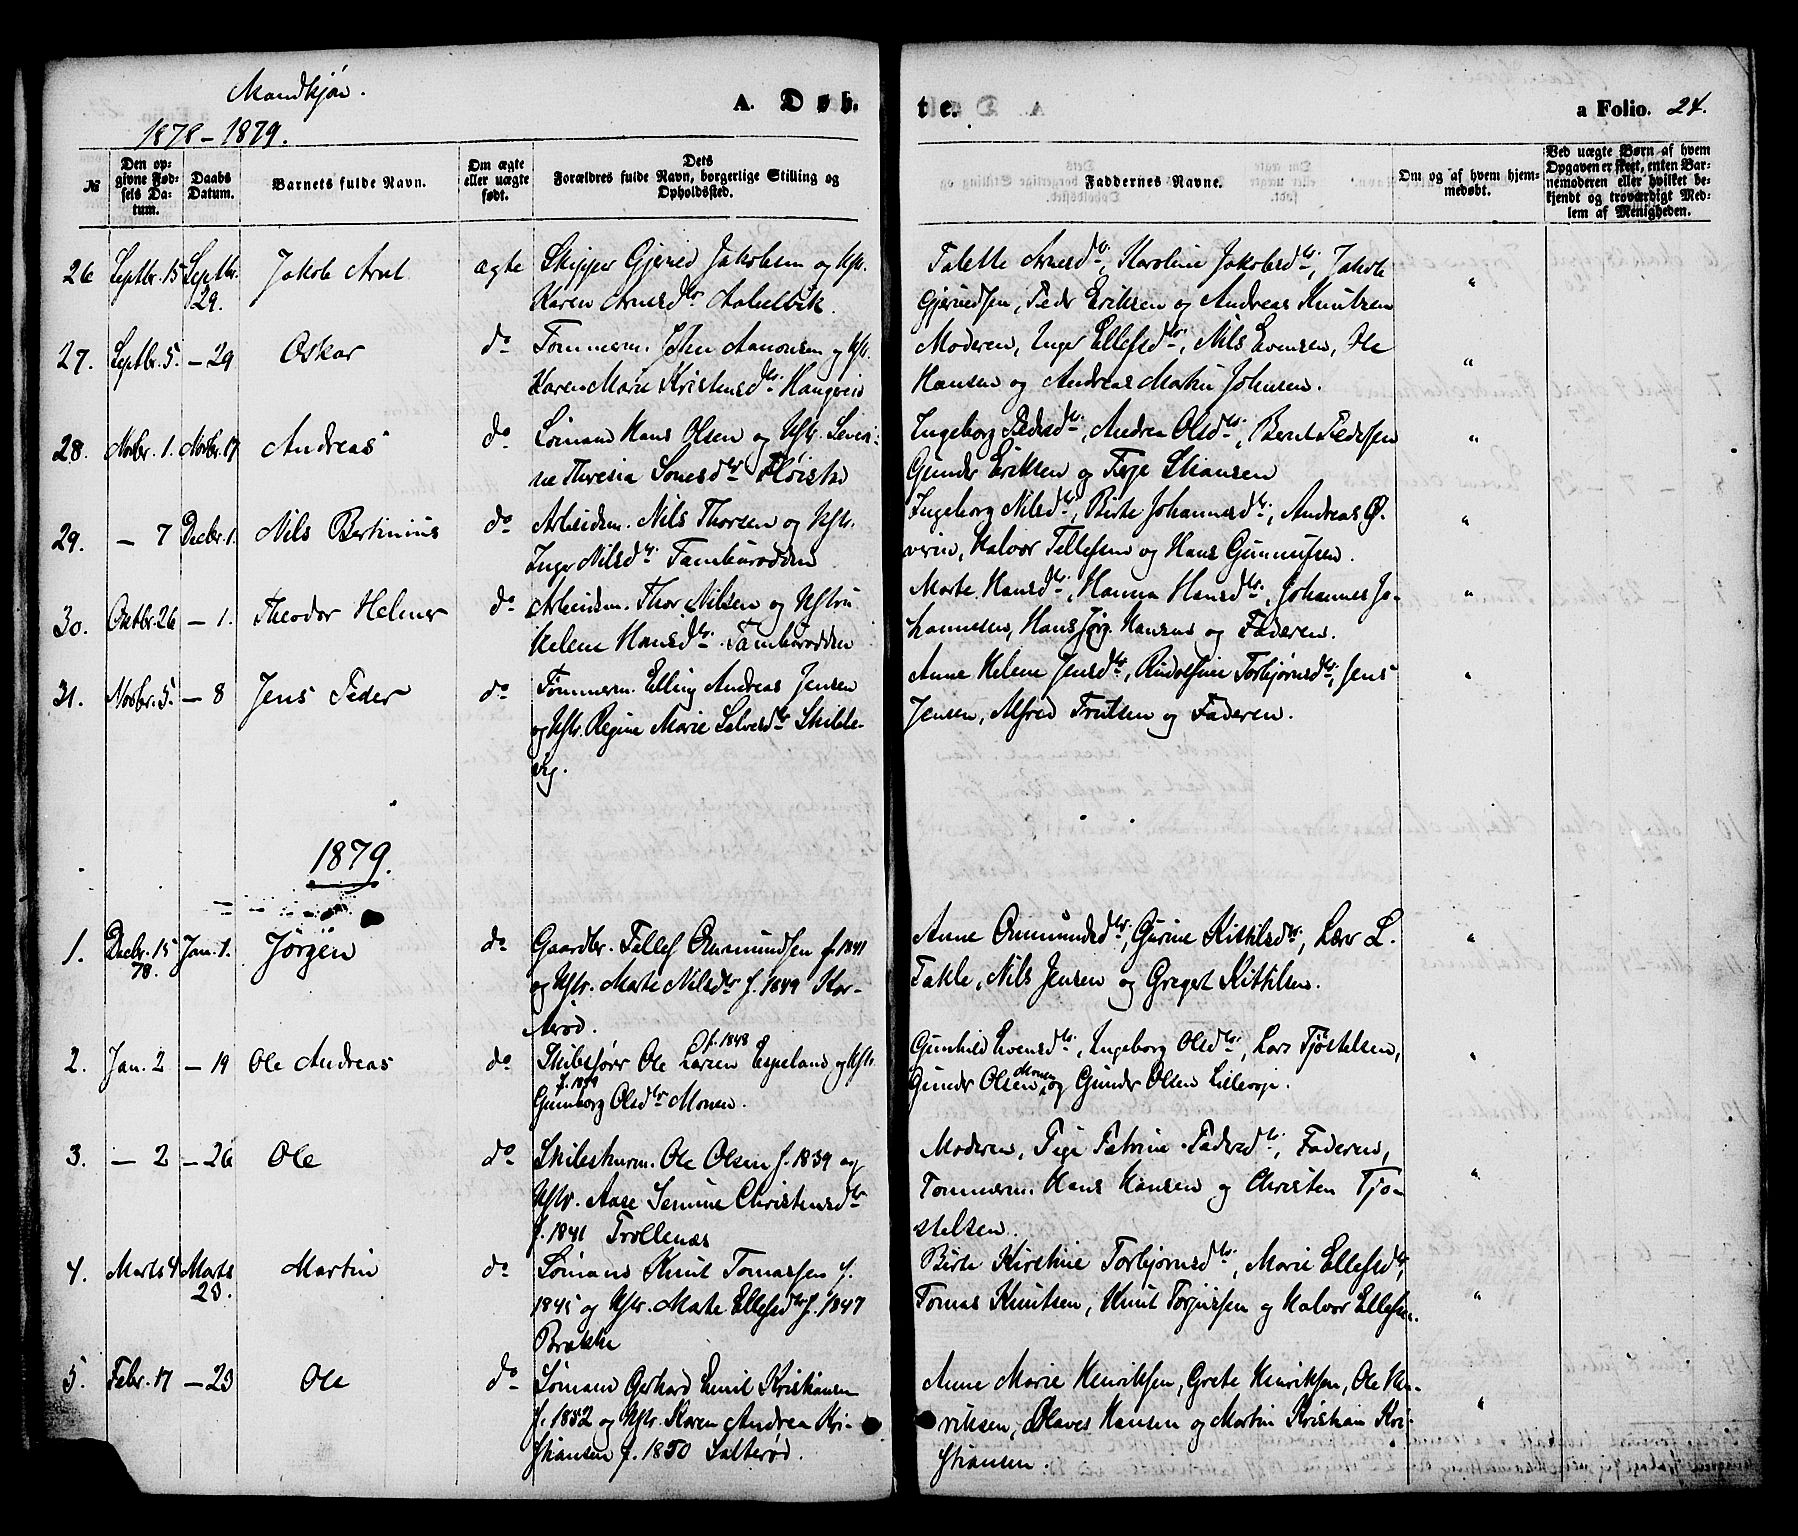 Mandkjön.
1878-1879.
A. Døb-
te.
a Folio. 24.
№
Den opgivne Fødsels Datum.
Daabs Datum.
Barnets fulde Navn.
Om ægte eller uægte født.
Dets Forældres fulde Navn, borgerlige Stilling og Opholdssted.
Faddernes Navne.
Om og af hvem hjemmedøbt.
Ved uægte Børn af hvem Opgaven er skeet, enten Barnemoderen eller hvilket bekjendt og troværdigt Medlem af Menigheden.
26 Septbr. 15 Septbr. 29. Jakob Arnt ægte Skipper Gjerued Jakobsen og Hstr.
Karen Arnesdtr
Talette Arnesdtr, Karoline Jakobsdtr, Jakob
Gjeruedsen, Peder Eriksen og Andreas Knutsen "
27. Septbr. 5. - 29 Oskar do Tømmerm. John Aanonsen og Hstr.
Karen Marie Kristensdtr. Haugveid
Moderen, Inger Ellefsdtr, Nils Evensen, Ole
Hansen og Andreas Martin Johnsen. "
28. Novbr. 1. Novbr. 17 Andreas do Sömand Hans Olsen og Hstr. Severi-
ne Theresia Fløista
Ingeborg Pedersdtr, Andrea Olsdtr, Bernt Pedersen
Gunder Eriksen og Terje Stiansen "
29. - 7 Decbr. 1. Nils Bertinius do Arbeidsm. Nils Thorsen og Hstr.
Inger Nilsdtr. Tambarodden
Ingeborg Nilsdtr, Birte Johannesdtr, Andreas Ø-
verin, Halvor Tellefsen og Hans Gunnufsen. "
30. Oktbr. 26 - 1. Theodor Helmer do Arbeidsm. Thor Nilsen og Hstru
Helene Hansdtr. Tambarodden
Marte Hansdtr, Hanna Hansdtr, Johannes Jo-
hannesen, Hans Jörg. Hansen og Faderen. "
31. Novbr. 5. - 8 Jens Peder do Tømmerm. Elling Andreas Jensen
og Hstr. Regine Marie Salvesdtr Skibbs-
vig.
Anne Helene Jensdtr, Rudolfine Torbjørnsdtr, Jens
Jensen, Alfred Knutsen og Faderen. "
1879.
1. Decbr. 15 78. Jan. 1. Jörgen do Gaardbr. Tellef Omundsen f. 1841
og Hstr. Marte Nilsdtr f. 1849
Anne Ommundsdtr, Gurine Kittilsdtr, Lærer L.
Takle, Nils Jensen og Gregert Kittilsen. "
2. Jan. 2 - 19 Ole Andreas do Skibsfører Ole Larsen f. 1848 Espeland og Hstr.
Gunborg Olsdtr Monen.
Gunhild Evensdtr, Ingeborg Olsdtr, Lars Tjöstelsen,
Gunder Olsen Monen og Gunder Olsen Lilleveje. "
3. - 2 - 26 Ole do Skibstømm. Ole Olsen f. 1839 og
Hstr. Aase Severine Christensdtr
f. 1841 Trollenæs
Moderen, Pige Petrine Pedersdtr, Faderen,
Tømmerm. Hans Hansen og Christen Tjö-
stelsen. "
4. Marts 4 Marts 23. Martin do Sömand Knut Tomassen f.
1845 og Hstr. Marte Ellefsdtr f. 1847
Brække
Birte Kirstine Torbjørnsdtr, Marie Ellefsdtr,
Tomas Knutsen, Knut Torjussen og Halvor Ellefsen. "
5. Febr. 17 - 23 Ole do Sömand Gerhard Emil Kristiansen
f. 1852 og Hstr. Karen Andrea Kri-
stiansen f. 1850 Salterød.
Anne Marie Henriksen, Grete Henriksen, Ole Hen-
riksen, Olaves Hansen og Martin Kristian Kri-
stiansen. "